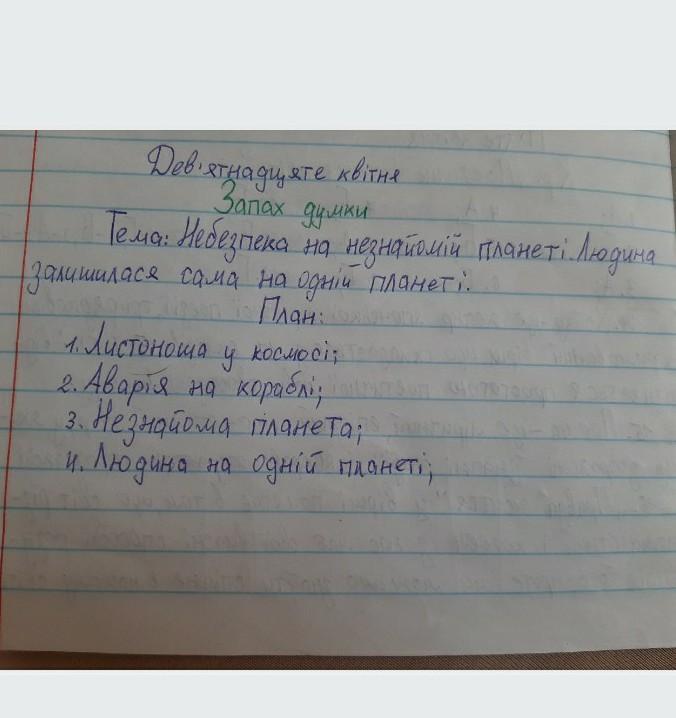 Дев'ятнадцяте квітня
Запах думки
Тема: Небезпека на незнайомій планеті. Людина
залишилася сама на одній планеті.
План:
1. Листоноша у космосі;
2. Аварія на кораблі;
3. Незнайома планета;
4. Людина на одній планеті;